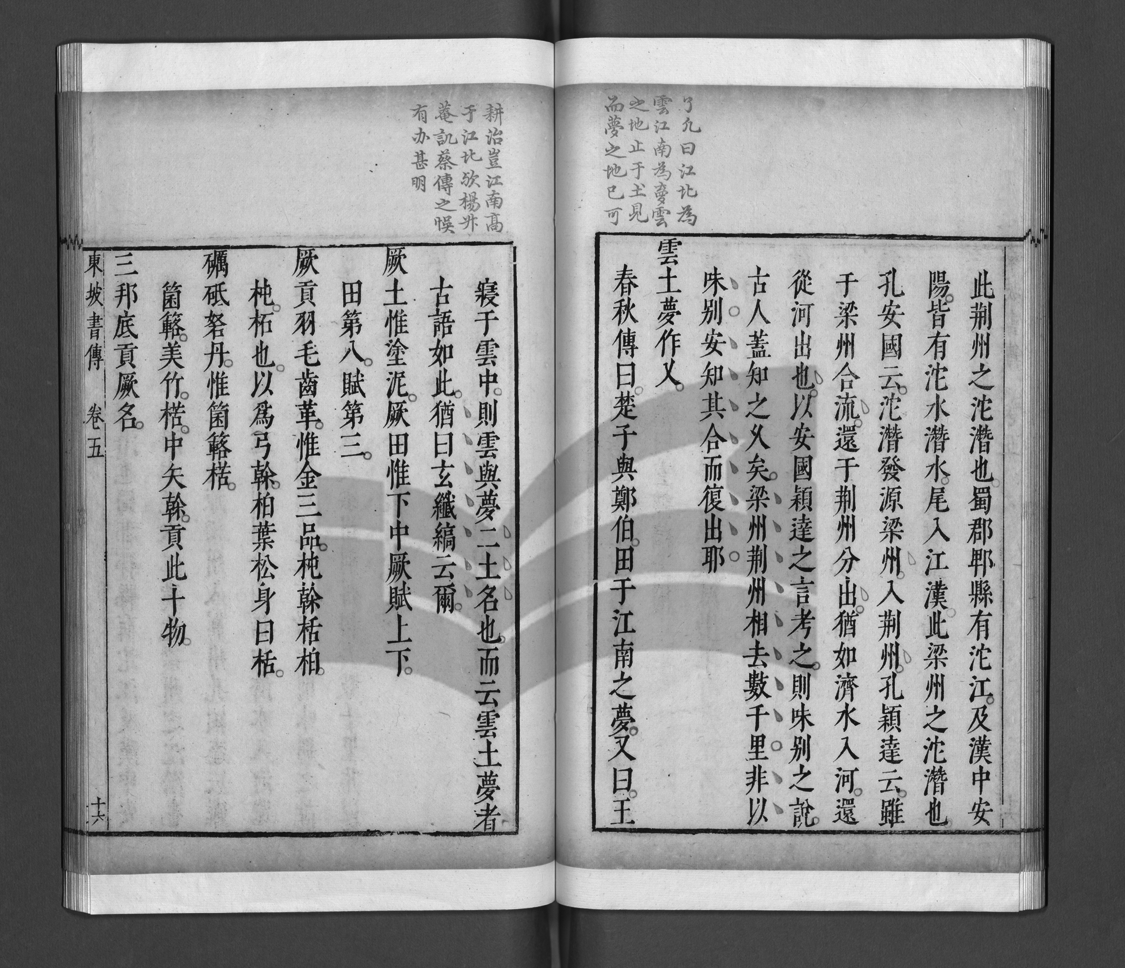 了凡曰江北為
雲江南為夢雲
之地止于土見
而夢之地已可
此荆州之沱潛也蜀郡郫縣有沱江及漢中安
陽皆有沱水潛水尾入江漢此梁州之沱潛也
孔安國云沱潛發源梁州入荆州孔穎達云雖
于梁州合流還于荆州分出猶如濟水入河還
從河出也以安國穎達之言考之則味别之說
古人蓋知之久矣梁州荆州相去數千里非以
味别安知其合而復出耶
雲土夢作乂
春秋傳曰楚子與鄭伯田于江南之夢又曰王
耕治豈江南高
于江北欤楊升
菴訊蔡傳之悞
有办甚明
寢于雲中則雲與夢二土名也而云雲土夢者
古語如此猶曰玄纖縞云爾
厥土惟塗泥厥田惟下中厥賦上下
田第八賦第三
厥貢羽毛齒革惟金三品杶榦栝柏
杶柘也以爲弓榦柏葉松身曰栝
礪砥砮丹惟箘簵楛
箘簵美竹楛中矢榦貢此十物
三邦底貢厥名
東坡書傳 卷五 十六